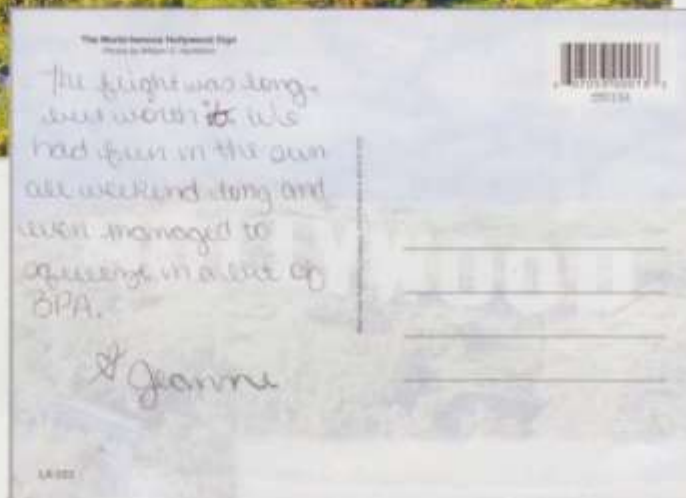 The World-famous Hollywood Sign
The flight was long,
but worth it. We
had fun in the sun
all weekend long and
even managed to
squeeze in a bit of
BPA.
Jeanne
HOLLYWOOD